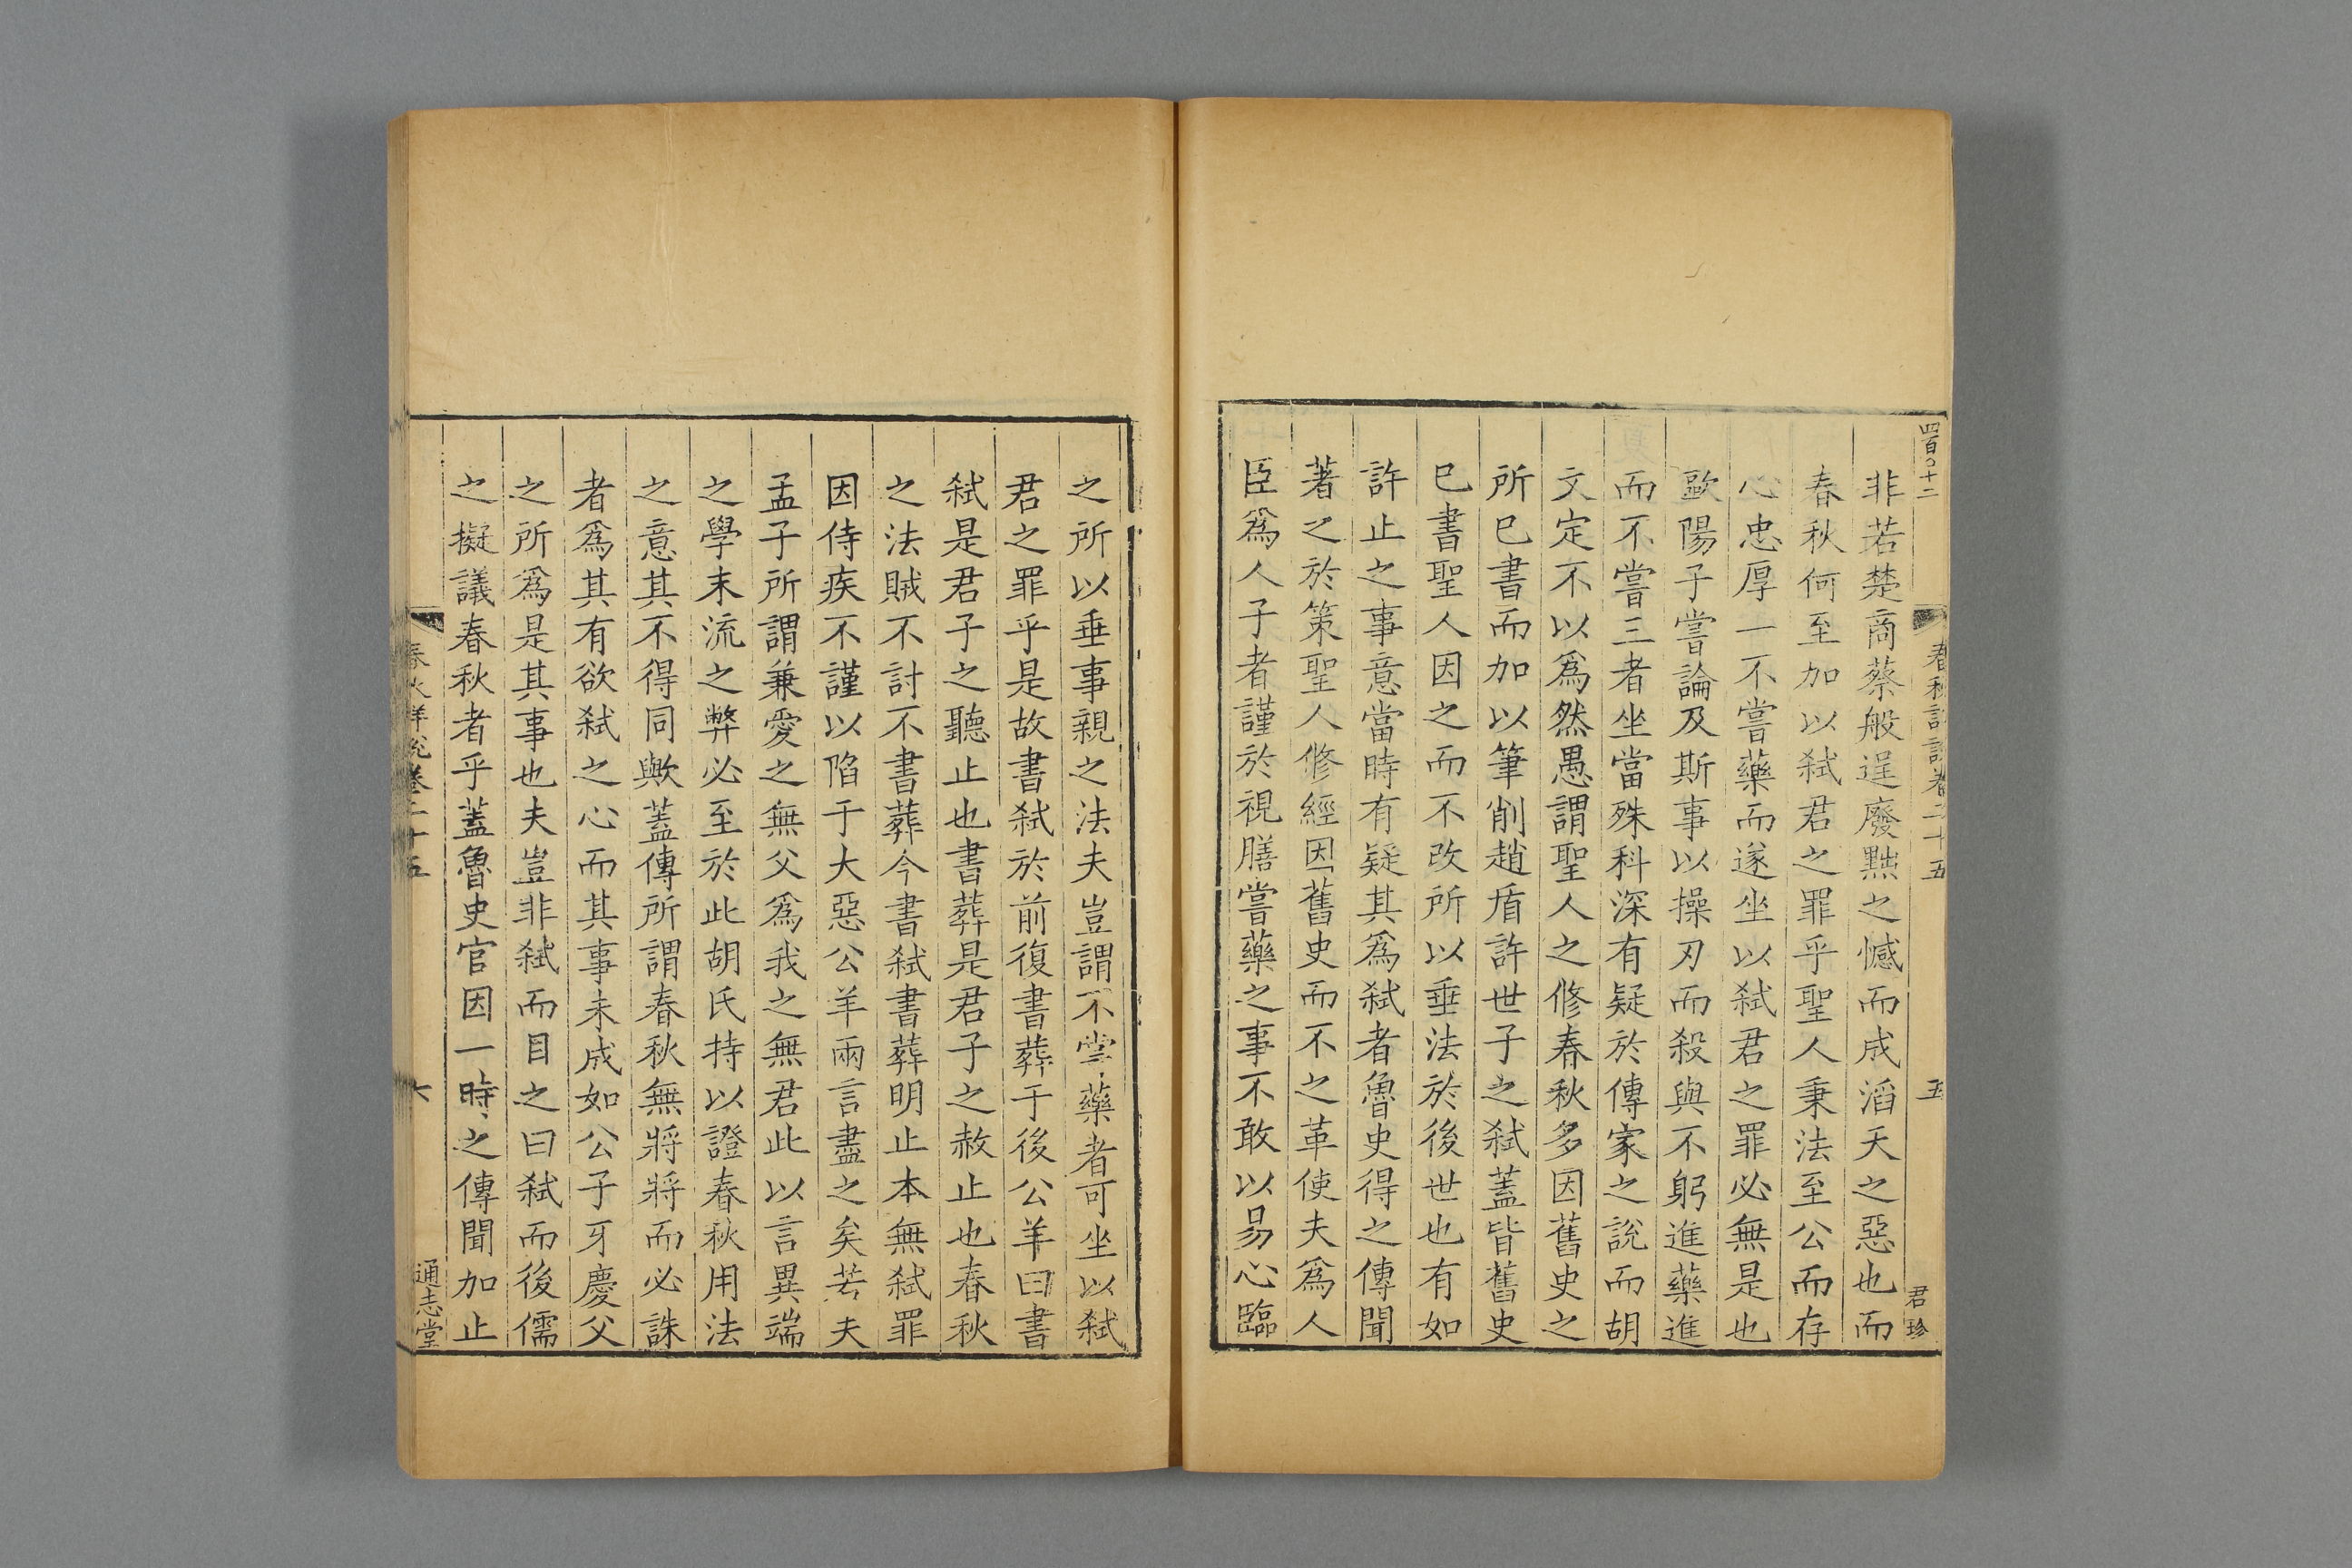 四百〇十二
春秋詳說卷二十五
五
君珍
非若楚商蔡般逞廢黜之憾而成滔天之惡也而
春秋何至加以弑君之罪乎聖人秉法至公而存
心忠厚一不嘗藥而遂坐以弑君之罪必無是也
歐陽子嘗論及斯事以操刃而殺與不躬進藥進
而不嘗三者坐當殊科深有疑於傳家之說而胡
文定不以爲然愚謂聖人之修春秋多因舊史之
所巳書而加以筆削趙盾許世子之弑蓋皆舊史
巳書聖人因之而不改所以垂法於後世也有如
許止之事意當時有疑其爲弑者魯史得之傳聞
著之於策聖人修經因舊史而不之革使夫爲人
臣爲人子者謹於視膳嘗藥之事不敢以易心臨
之所以垂事親之法夫豈謂不嘗藥者可坐以弑
君之罪乎是故書弑於前復書葬于後公羊曰書
弑是君子之聽止也書葬是君子之赦止也春秋
之法賊不討不書葬今書弑書葬明止本無弑罪
因侍疾不謹以陷于大惡公羊兩言盡之矣若夫
孟子所謂兼愛之無父爲我之無君此以言異端
之學末流之弊必至於此胡氏持以證春秋用法
之意其不得同歟蓋傳所謂春秋無將將而必誅
者爲其有欲弑之心而其事未成如公子牙慶父
之所爲是其事也夫豈非弑而目之曰弑而後儒
之擬議春秋者乎蓋魯史官因一時之傳聞加止
春秋詳說卷二十五
六
通志堂